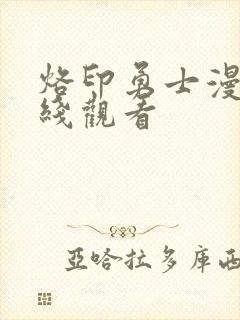 烙印勇士漫
綫觀看
亞哈拉多庫西